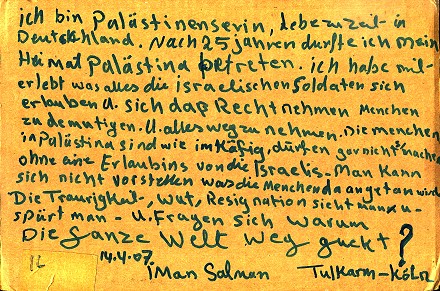 ich bin Palästinenserin, lebe zuzeit in
Deutschland. Nach 25 jahren durfte ich mein
Heimat Palästina betreten. ich habe mit-
erlebt was alles die israelischen Soldaten sich
erlauben u. sich das Recht nehmen Menchen
zu demutigen. u. alles weg zu nehmen. Die menchen
in Palästina sind wie im Käfig, dürfen gar nicht machen
ohne eine Erlaubins von die Israelis. Man kann
sich nicht vorstellen was die Menchen da angetan wird
Die Traurigkeit, Wut, Resignation sieht man u-
spürt man - u. Fragen sich warum
Die ganze Welt weg guckt?
14.4.07
iman Salman Tulkarm-Köln